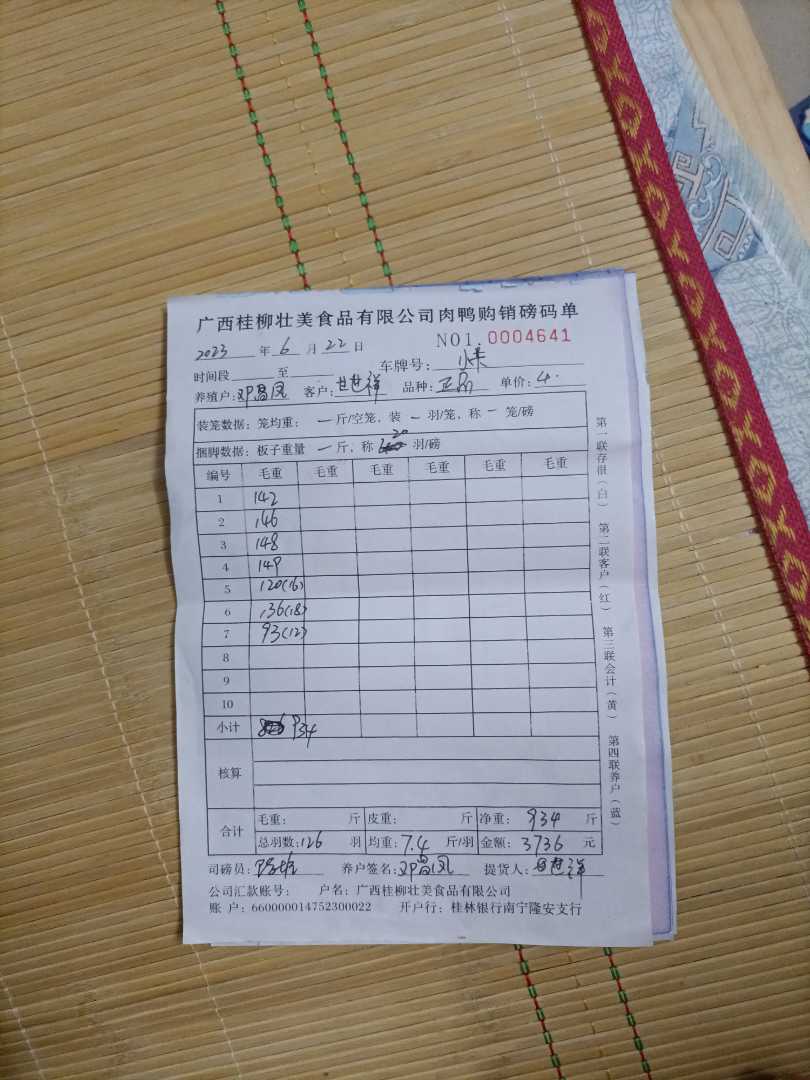 广西桂柳壮美食品有限公司肉鸭购销磅码单
NO1. 0004641
2023 年 6 月 22 日
时间段 至 车牌号:
养殖户: 邓昌凤 客户: 世祥 品种: 正品 单价: 4.
装笼数据: 笼均重: 一 斤/空笼, 装 一 羽/笼, 称 一 笼/磅
捆脚数据: 板子重量 一 斤, 称 20 羽/磅
编号 毛重 毛重 毛重 毛重 毛重 毛重
1 142
2 146
3 148
4 149
5 120(16)
6 136(18)
7 93(12)
8
9
10
小计 934
核算
合计 毛重: 斤 皮重: 斤 净重: 934 斤
总羽数: 126 羽 均重: 7.4 斤/羽 金额: 3736 元
司磅员: 养户签名: 邓昌凤 提货人: 世祥
公司汇款账号: 户名: 广西桂柳壮美食品有限公司
账 户: 660000014752300022 开户行: 桂林银行南宁隆安支行
第一联存根(白) 第二联客户(红) 第三联会计(黄) 第四联养户(蓝)